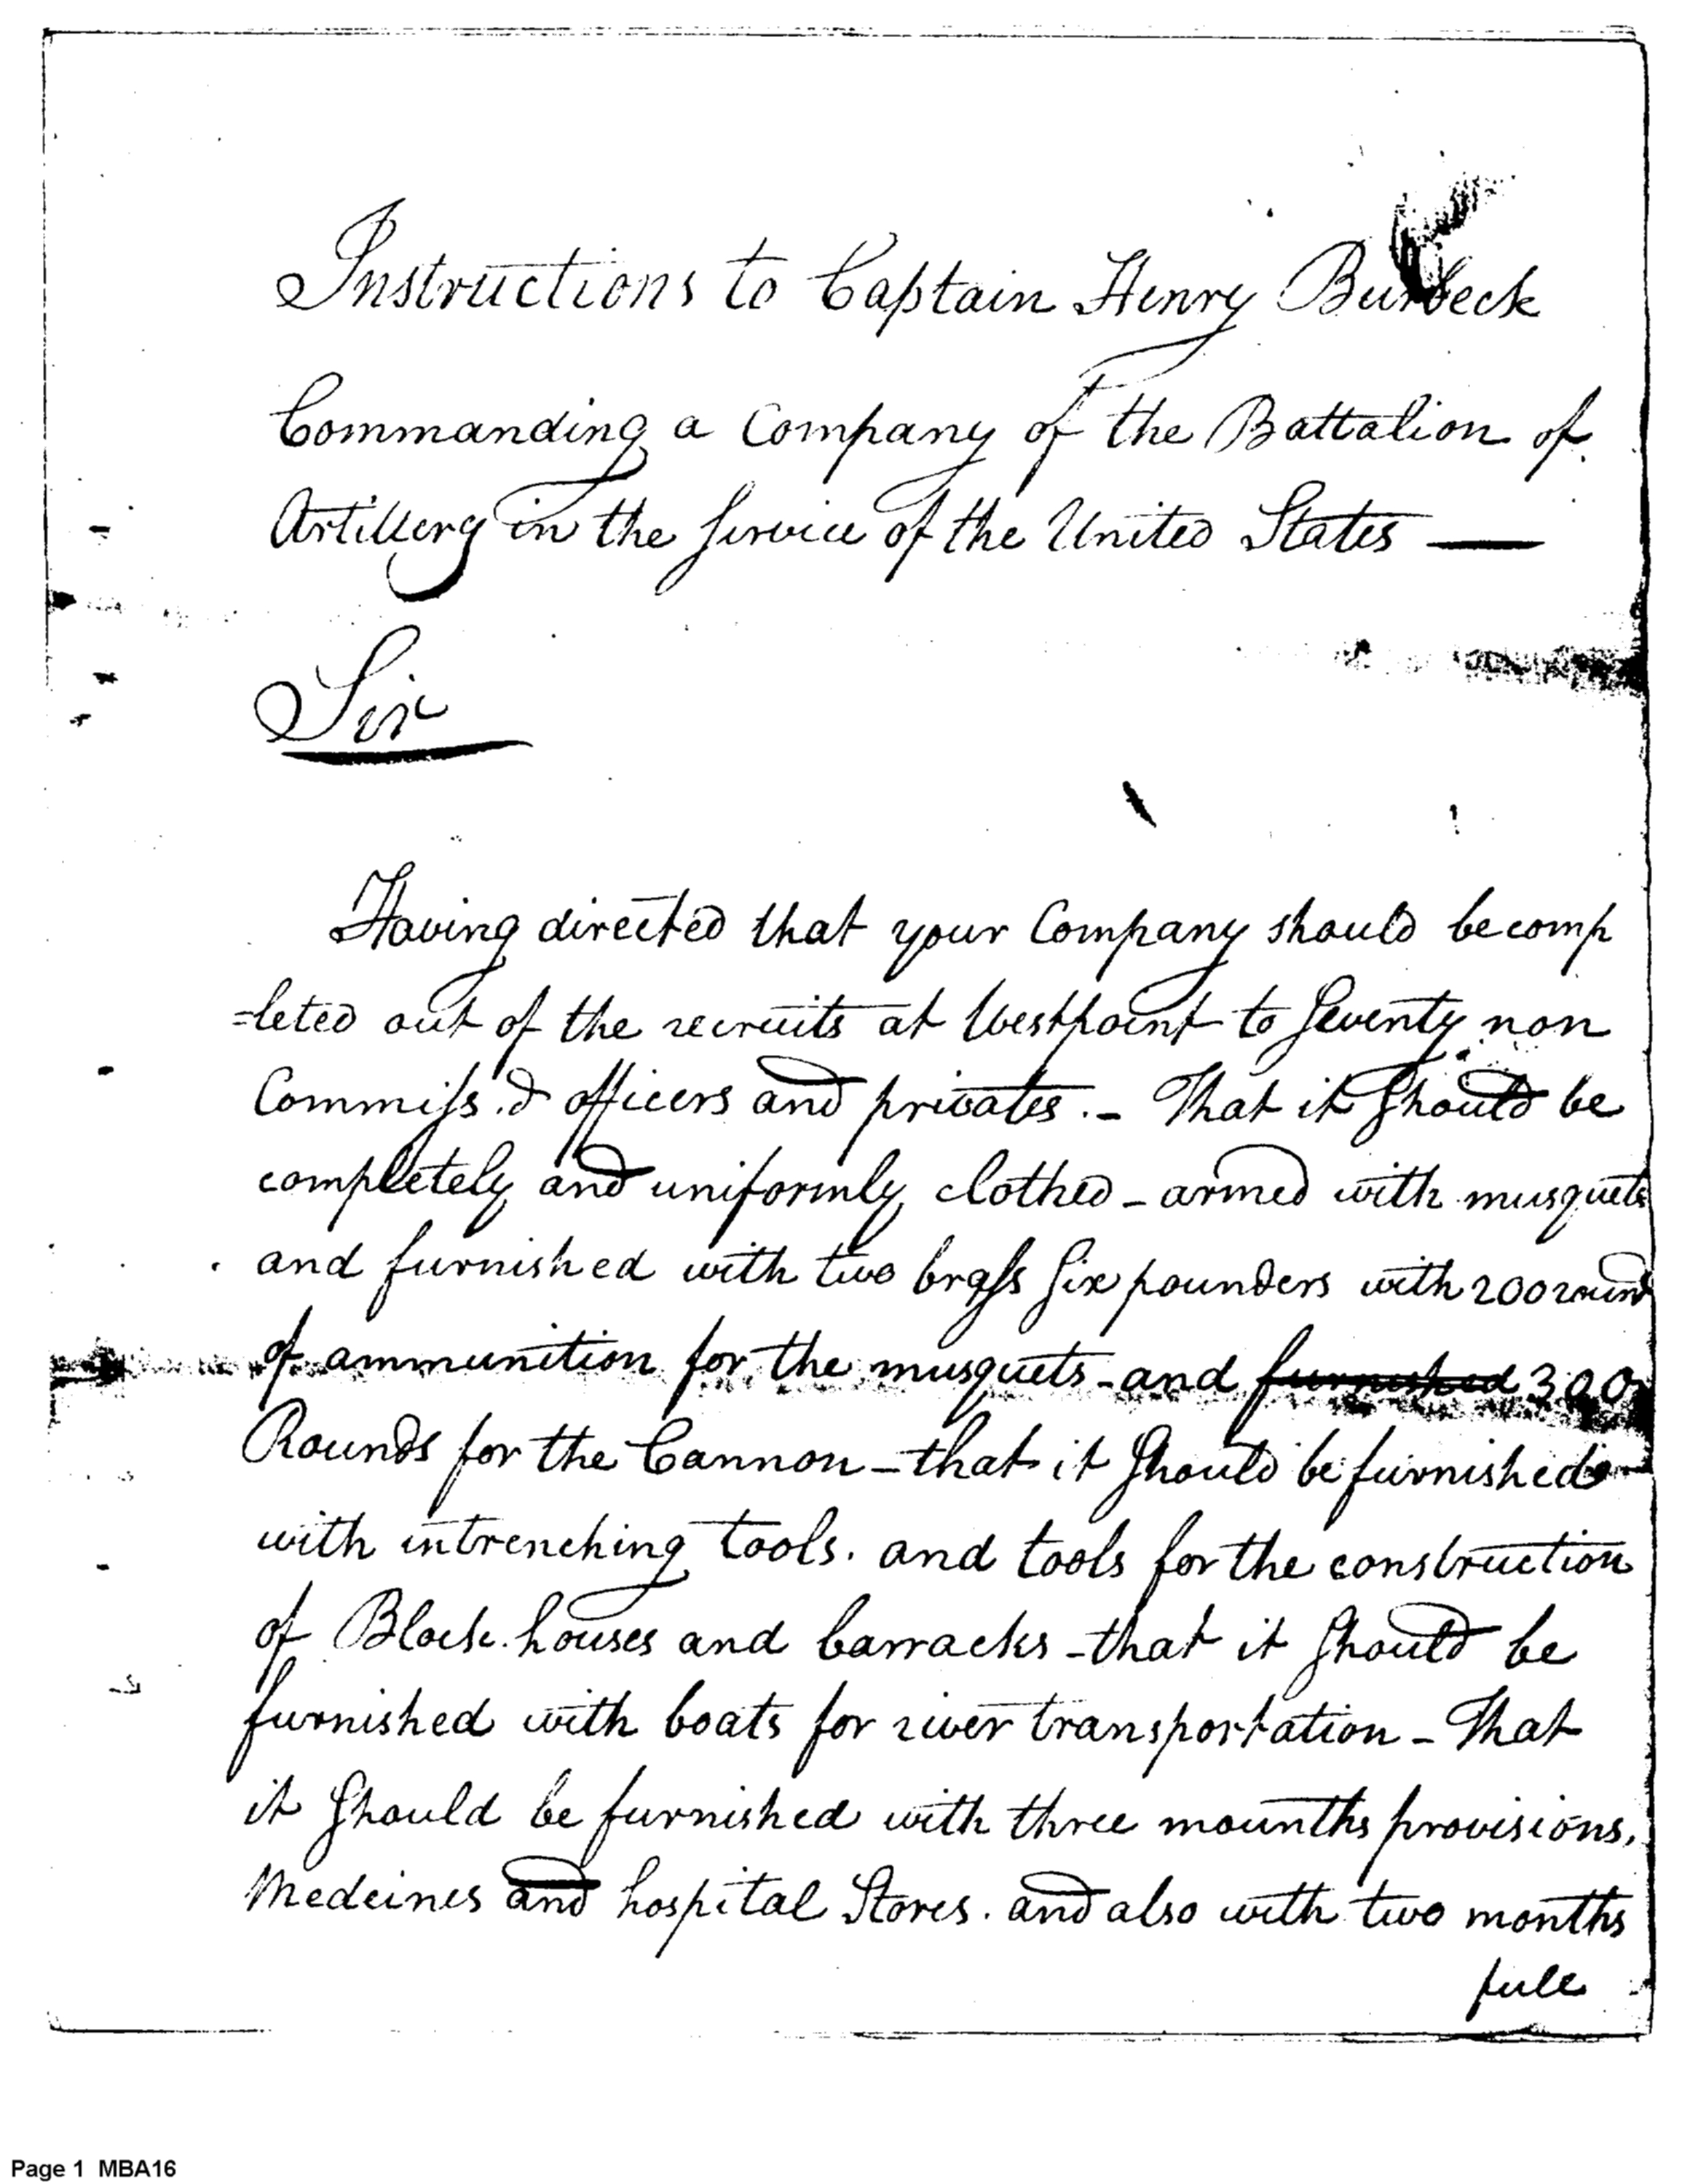 Instructions to Captain Henry Burbeck
Commanding a Company of the Battalion of
Artillery in the Service of the United States —
Sir
Having directed that your Company should be comp
=leted out of the recruits at Westpoint to Seventy non
Commiss.d officers and privates. - That it Should be
completely and uniformly clothed - armed with musquets
and furnished with two brass Six pounders with 200 round
of ammunition for the musquets - and furnished 300
Rounds for the Cannon - that it Should be furnished
with intrenching tools. and tools for the construction
of Block. houses and barracks - that it Should be
furnished with boats for river transportation - That
it Should be furnished with three mounths provisions,
Medcines and hospital Stores. and also with two months
full
Page 1 MBA16